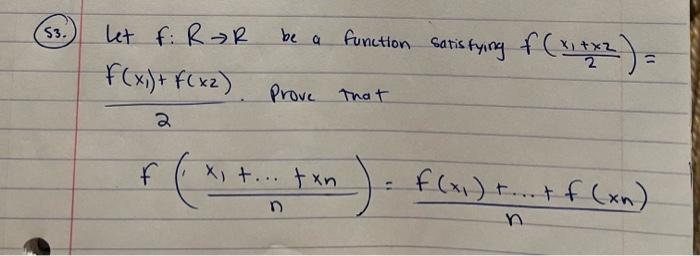 53. Let f: R → R be a function satisfying f(x₁+x₂/2) =
f(x₁)+f(x₂)/2. Prove that
f(x₁+...+xn/n) = f(x₁)+...+f(xn)/n